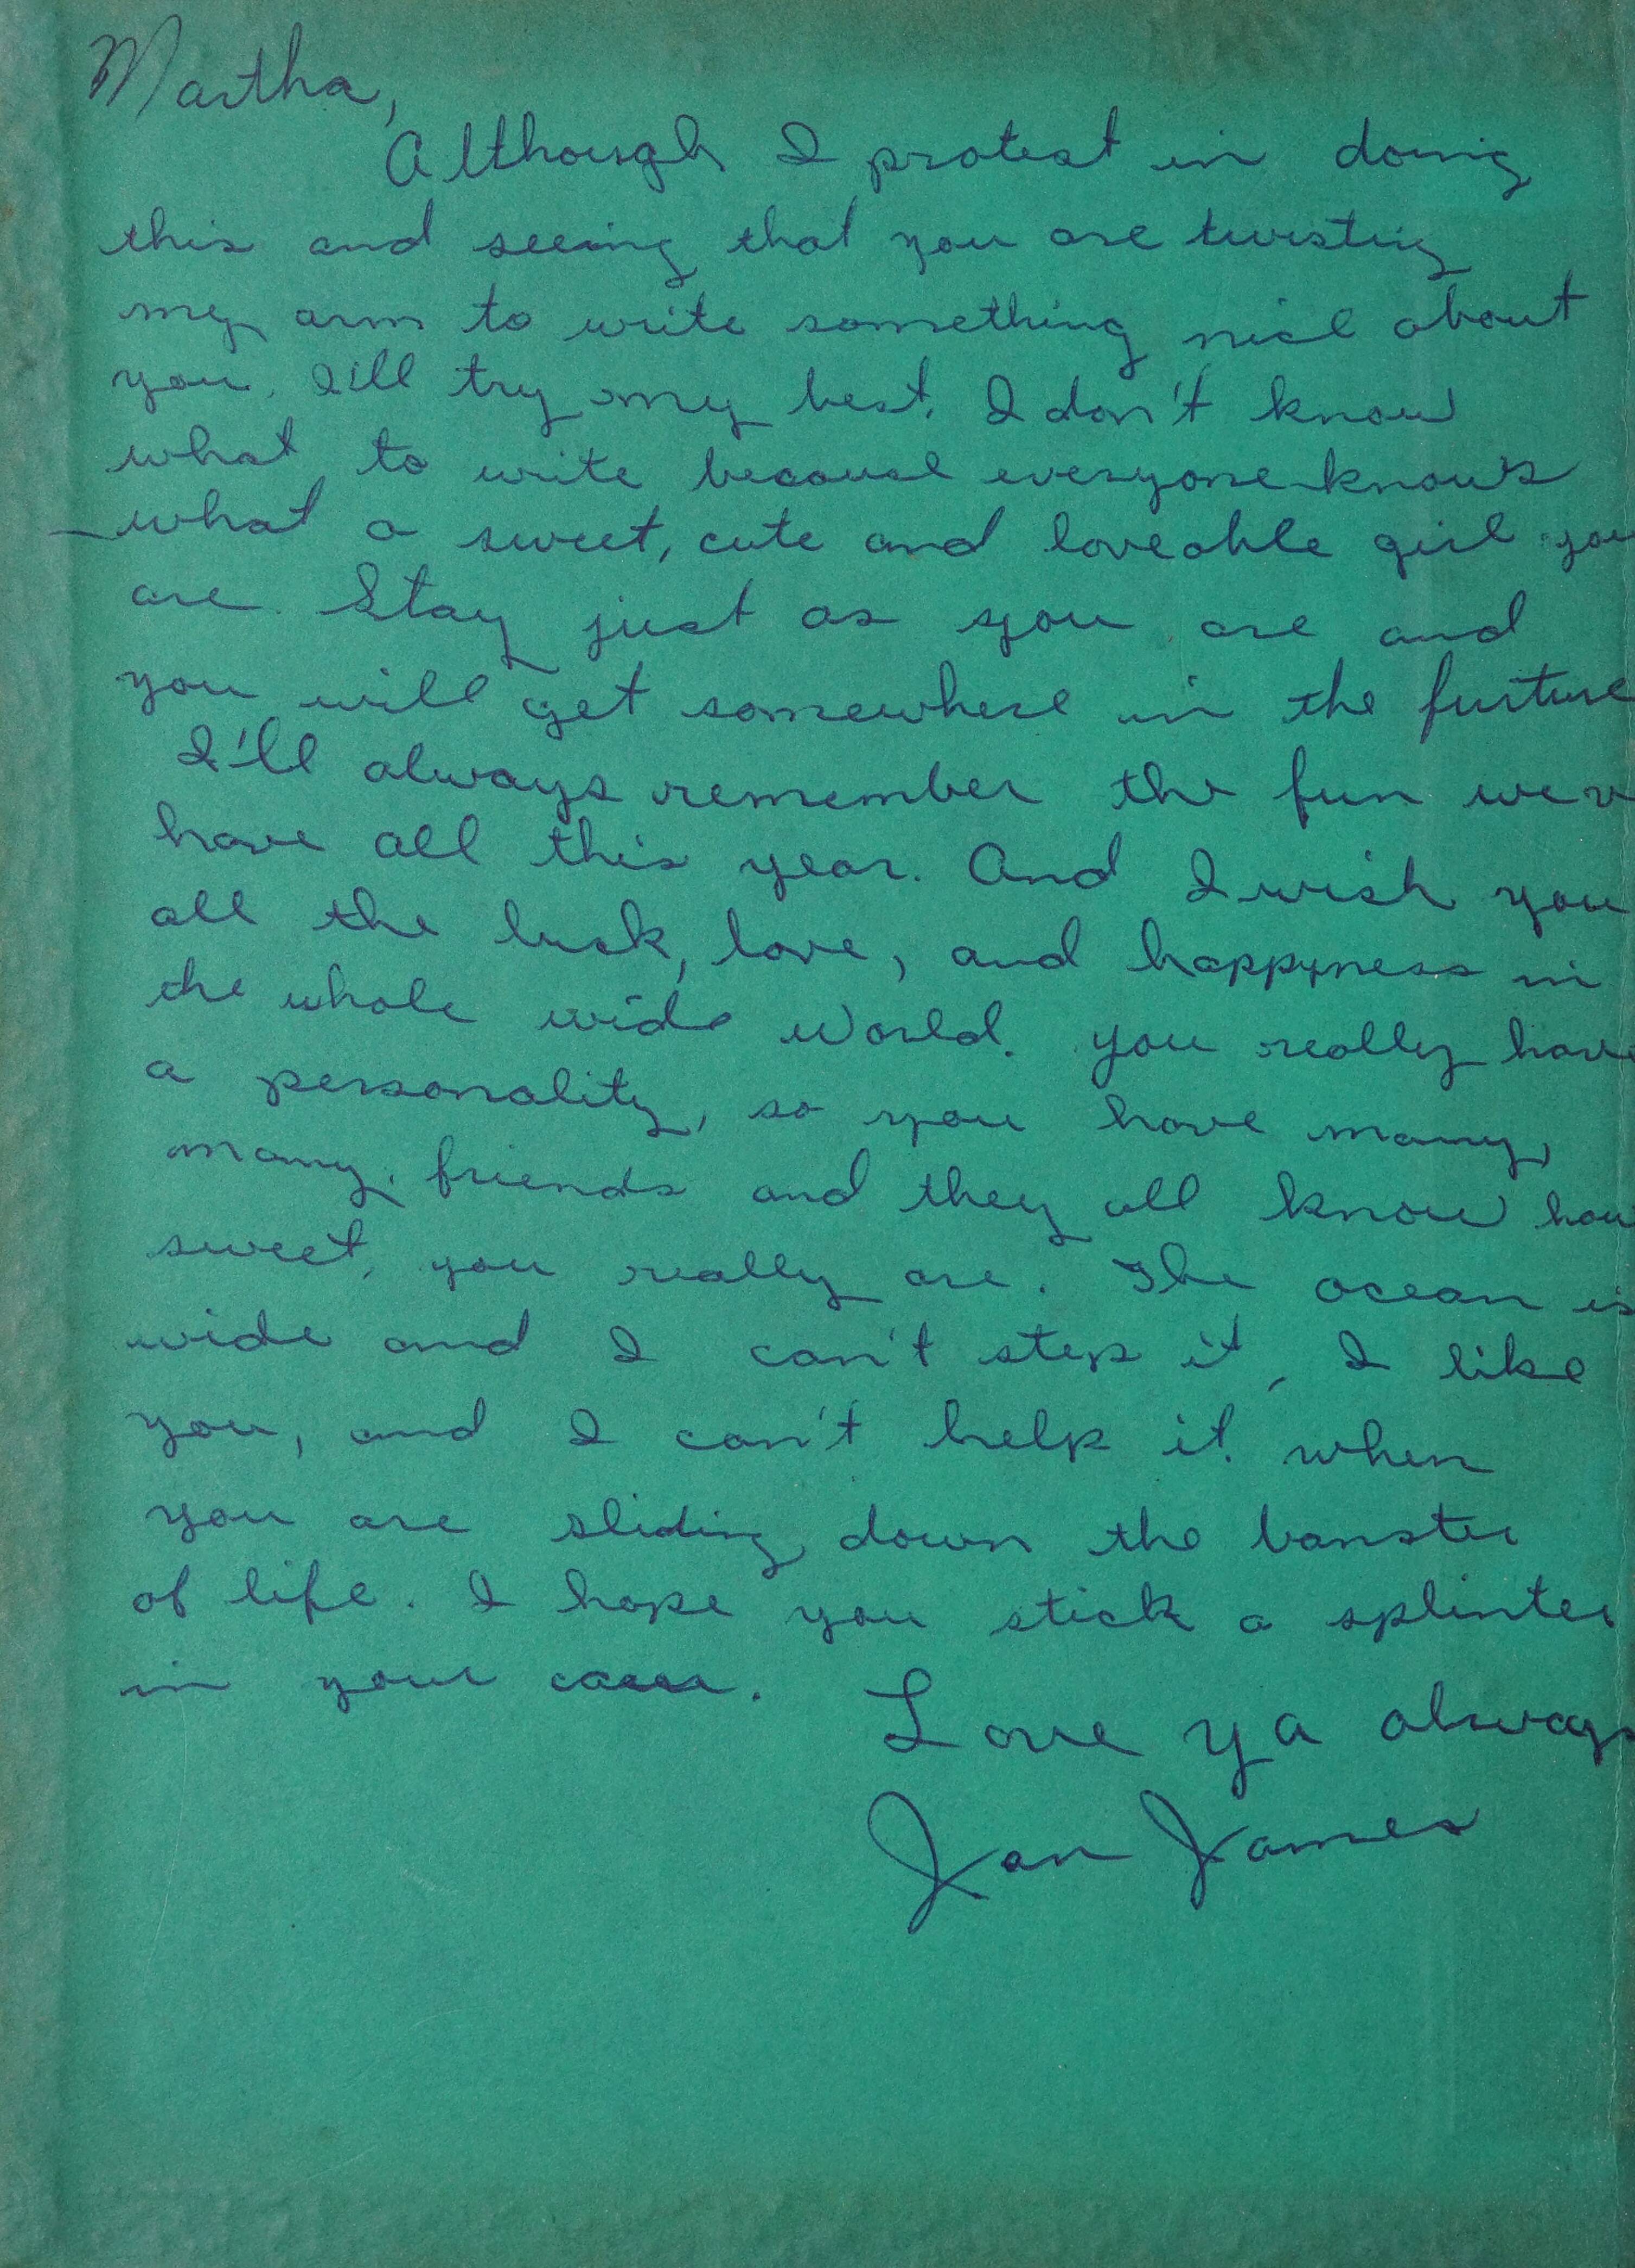 Martha,
Although I protest in doing
this and seeing that you are twisting
my arm to write something nice about
you. I'll try my best. I don't know
what to write because everyone knows
what a sweet, cute and loveable girl you
are. Stay just as you are and
you will get somewhere in the furture
I'll always remember the fun we
have all this year. And I wish you
all the luck, love, and happyness in
the whole wide world. you really have
a personality, so you have many,
many friends and they all know how
sweet, you really are. The ocean is
wide and I can't step it, I like
you, and I can't help it. when
you are sliding down the banster
of life. I hope you stick a splinter
in your
Love ya always
Jan James